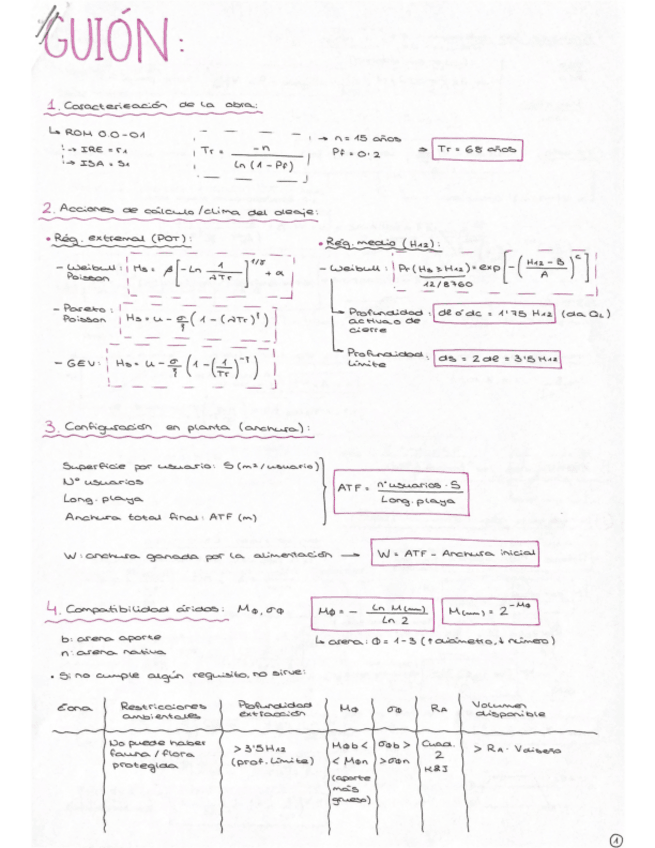 GUIÓN:
1. Caracterización de la obra:
↳ ROM 0.0-01
→ IRE = r1
→ ISA = s1
Tr = -n / Ln (1 - Pf)
→ n = 15 años
Pf = 0.2
⇒ Tr = 68 años
2. Acciones de cálculo/clima del oleaje:
• Rég. extremal (POT):
- Weibull Poisson: Hs = β [-Ln 1/λTr]^1/γ + α
- Pareto Poisson: Hs = u - σ/ξ (1 - (λTr)^ξ)
- GEV: Hs = u - σ/ξ (1 - (1/Tr)^-ξ)
• Rég. medio (H12):
- Weibull: Pr (Hs ≥ H12) = exp [-((H12 - B)/A)^C]
12/8760
Profundidad activa o de cierre: dl ó dc = 1'75 H12 (da QL)
Profundidad Límite: ds = 2 dl = 3'5 H12
3. Configuración en planta (anchura):
Superficie por usuario: S (m²/usuario)
Nº usuarios
Long. playa
Anchura total final: ATF (m)
ATF = nº usuarios · S / Long. playa
W: anchura ganada por la alimentación → W = ATF - Anchura inicial
4. Compatibilidad áridos: MΦ, σΦ
MΦ = - Ln M(mm) / Ln 2
M(mm) = 2^-MΦ
b: arena aporte
n: arena nativa
↳ arena: Φ = 1-3 (↑ diámetro, ↓ número)
• Si no cumple algún requisito, no sirve:
Zona
Restricciones ambientales
Profundidad extracción
MΦ
σΦ
RA
Volumen disponible
No puede haber fauna / flora protegida
> 3'5 H12 (prof. Límite)
MΦb < < MΦn (aporte más grueso)
σΦb > > σΦn
Cuad. 2 K&J
> RA · Vdiseño
1